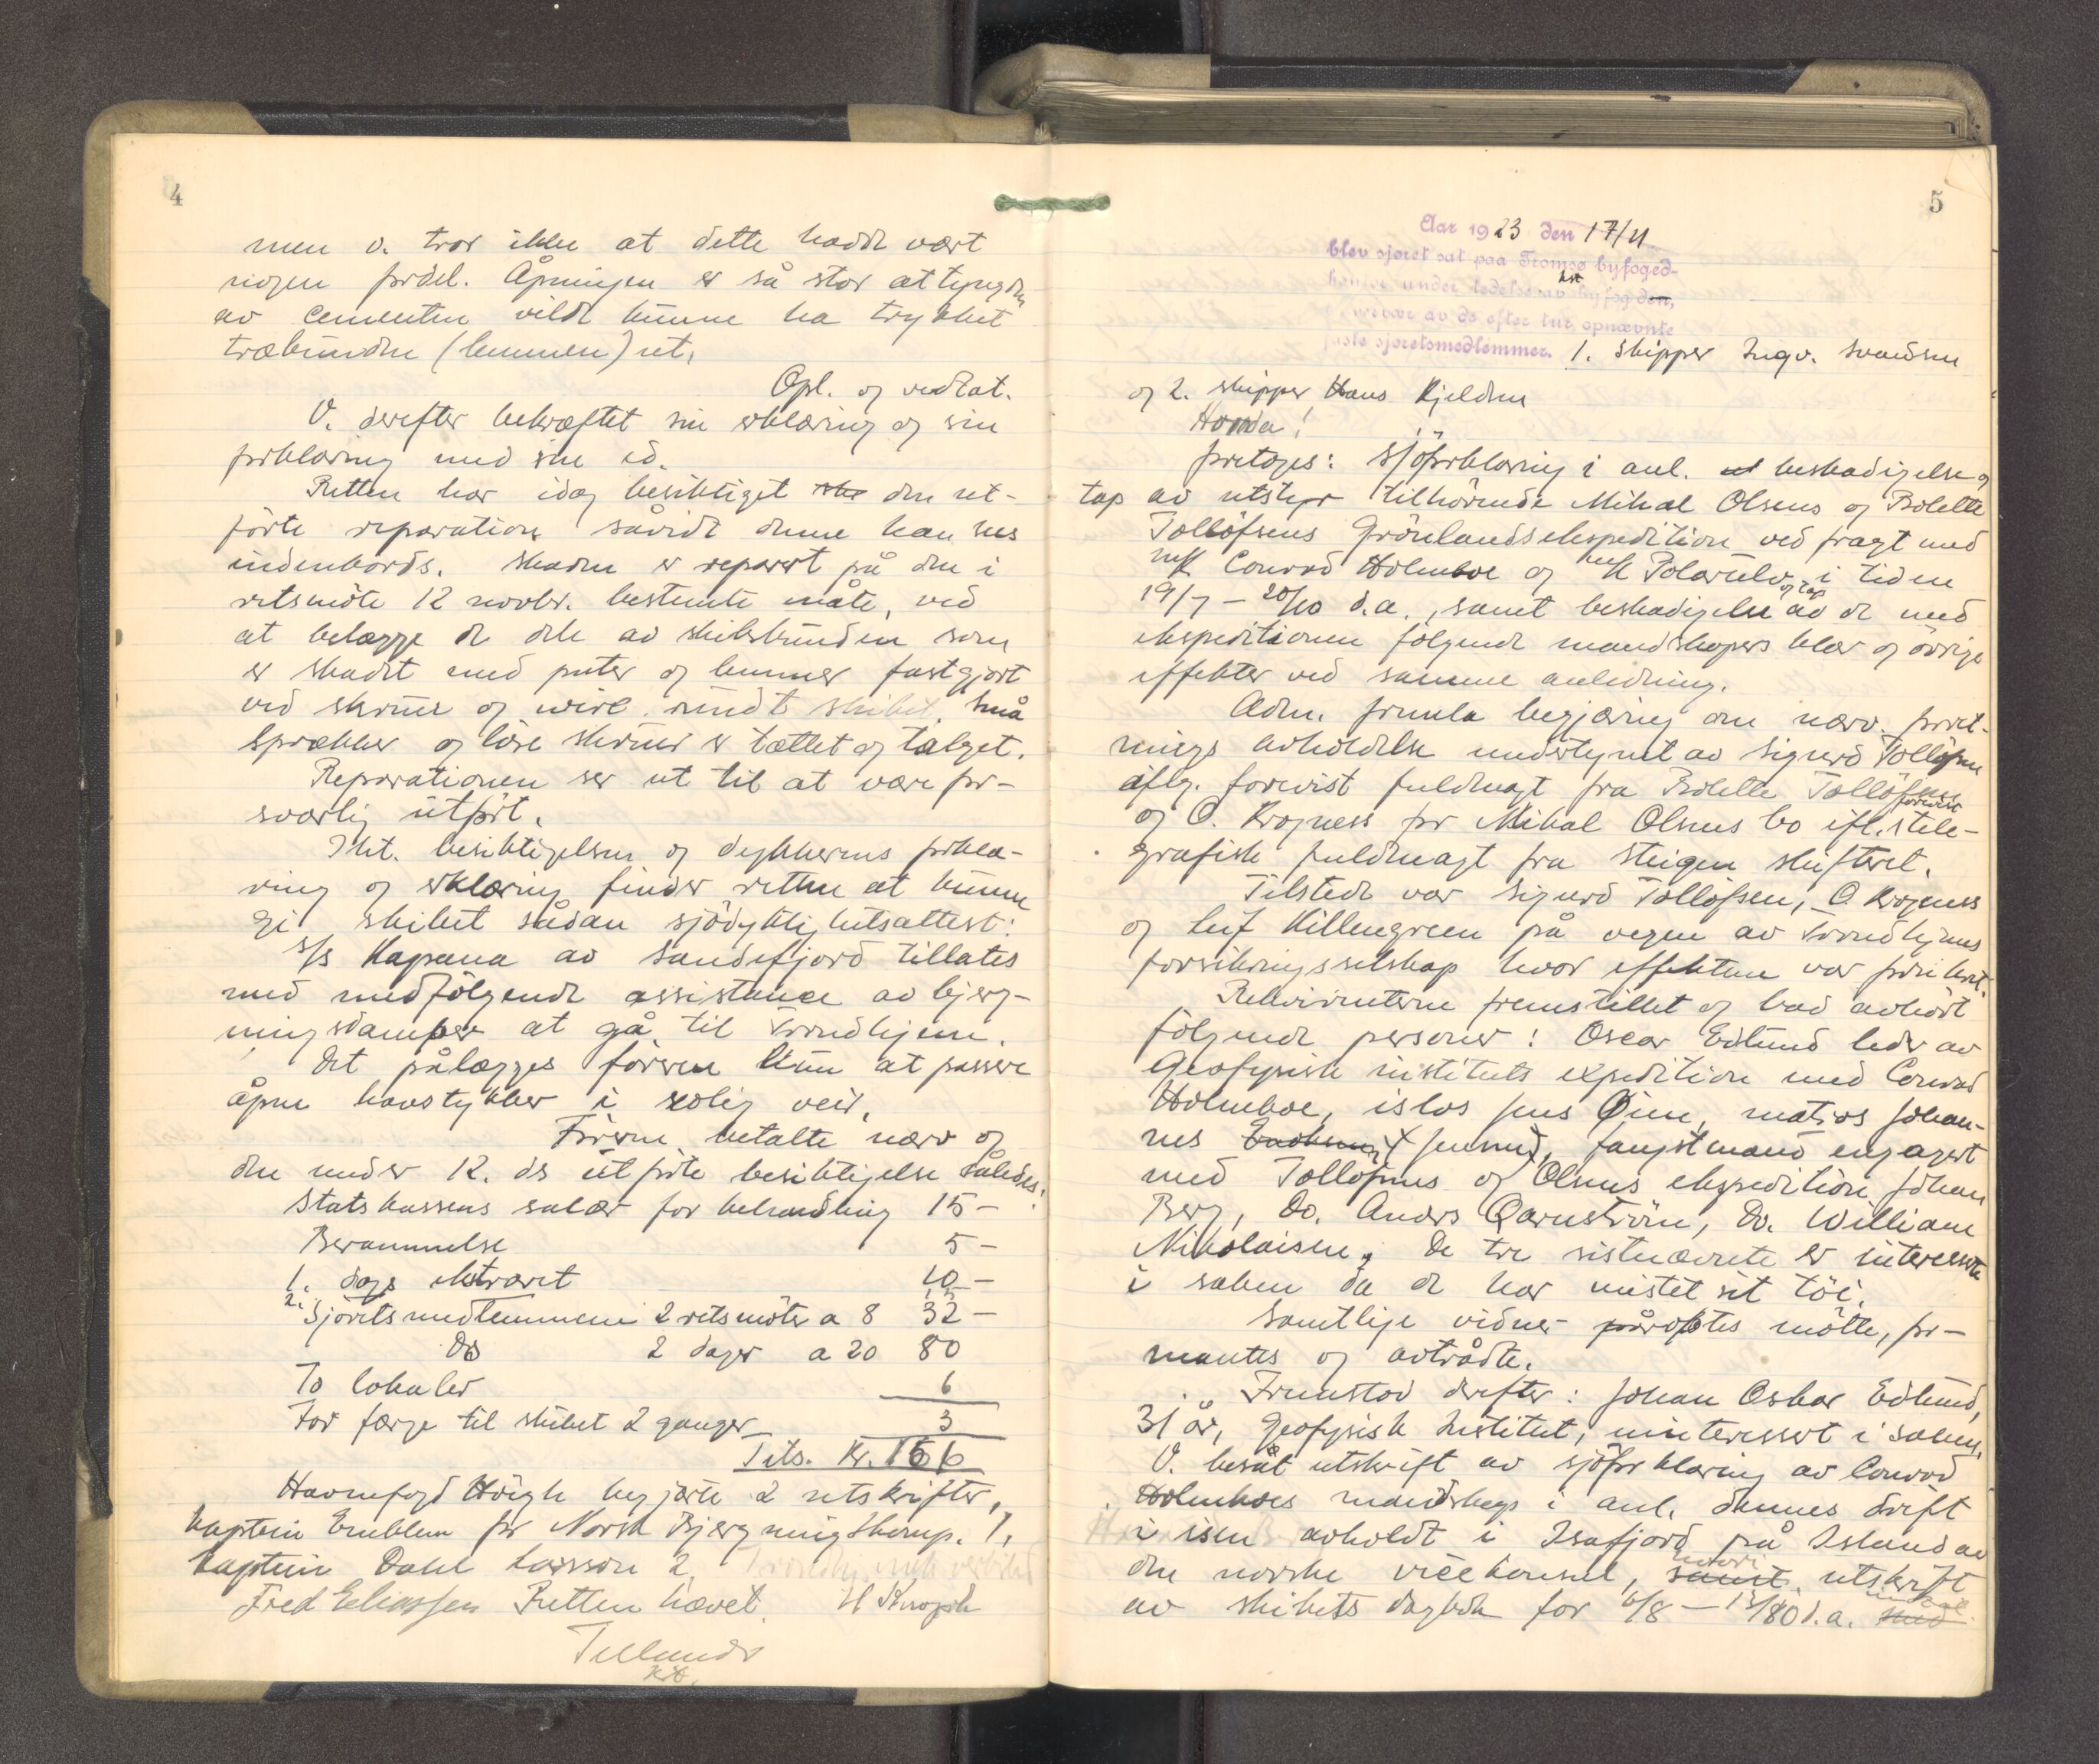 4
men v. tror ikke at dette hadde vært
nogen fordel. Åpningen er så stor at tyngden
av cementen vilde kunne ha trykket
træbunden (lemmen) ut.
Opl. og vedtat.
V. derefter bekræftet sin erklæring og sin
forklaring med sin ed.
Retten har idag besiktiget den ut-
førte reparation såvidt denne kan sees
indenbords. Skaden er reparert på den i
retsmöte 12 novbr. bestemte måte, ved
at belægge de dele av skibsbunden som
er skadet med puter og lemmer fastgjort
ved skruer og wire rundt skibet. Små
sprækker og løse skruer er tættet og talget.
Reparationen ser ut til at være for-
svarlig utført.
Iht. besiktigelsen og dykkerens forkla-
ring og erklæring finder retten at kunne
gi skibet sådan sjödyktighetsattest:
S/S Kapana av Sandefjord tillates
med medfölgende assistance av bjerg-
ningsdamper at gå til Trondhjem.
Det pålægges föreren kun at passere
åpne havstykker i rolig veir.
Föreren betalte nærv. og
den under 12. ds utförte besiktigelse således:
Statskassens salær for behandling 15 -
Berammelse 5 -
1. dags ekstraret 10 -
2. Sjöretsmedlemmene 2 retsmöter a 8 32 -
Do 2 dager a 20 80
To lokaler 6
For færge til skibet 2 ganger 3
Tils. Kr. 156
Havnefogd Höigh begjærte 2 utskrifter,
kaptein Emblem for Norsk Bjergningskomp. 1,
kaptein Dahl Larsson 2.
Fred Eliassen Retten hævet. H Kroogh
Tellands
kst.
5
Aar 1923 den 17/11
blev sjøret sat paa Tromsø byfoged-
kontor under ledelse av kst byfogden,
av de efter tur opnævnte
faste sjøretsmedlemmer. 1. Skipper Ingv. Svendsen
og 2. skipper Hans Kjeldsen
Hvorda!
foretoges: Sjöforklaring i anl. beskadigelse og
tap av utstyr tilhörende Mikal Olsens og Bolette
Tollöfsens Grönlandsekspedition ved fragt med
m/k Conrad Holmboe og m/k Polarulv i tiden
19/7 - 20/10 d.a., samt beskadigelse og tap av de med
ekspeditionen fölgende mandskapers klær og övrige
effekter ved samme anledning.
Adm. fremla begjæring om nærv. forret-
nings avholdelse undertegnet av Sigurd Tollöfsen
iflg. forevist fuldmagt fra Bolette Tollöfsen
og O. Krogness for Mikal Olsens bo ifl. forevist tele-
grafisk fuldmagt fra Steigen skifteret.
Tilstede var Sigurd Tollöfsen, O. Krogness
og Leif Killengreen på vegne av Trondhjems
forsikringsselskap hvor effektene var forsikret.
Rekvirenterne fremstillet og bad avhört
fölgende personer: Oscar Edlund leder av
Geofysisk instituts expedition med Conrad
Holmboe, islos Jens Öien, matros Johan-
nes Jensen, fangstmand engagert
med Tollöfsens og Olsens ekspedition Johan
Berg, Do. Anders Qarnström, Do. William
Nikolaisen. De tre sistnævnte er interessert
i saken da de har mistet sit töi.
Samtlige vidner påroptes mötte, for-
mantes og avtrådte.
Fremstod derefter: Johan Oskar Edlund,
31 år, Geofysisk Institut, uinteressert i saken.
V. besåt utskrift av sjöforklaring av Conrad
Holmboes mandskap i anl. dennes drift
i isen avholdt i Isafjord på Island av
den norske vicekonsul, samt utskrift
av skibets dagbok for 6/8 - 13/8 d.a.